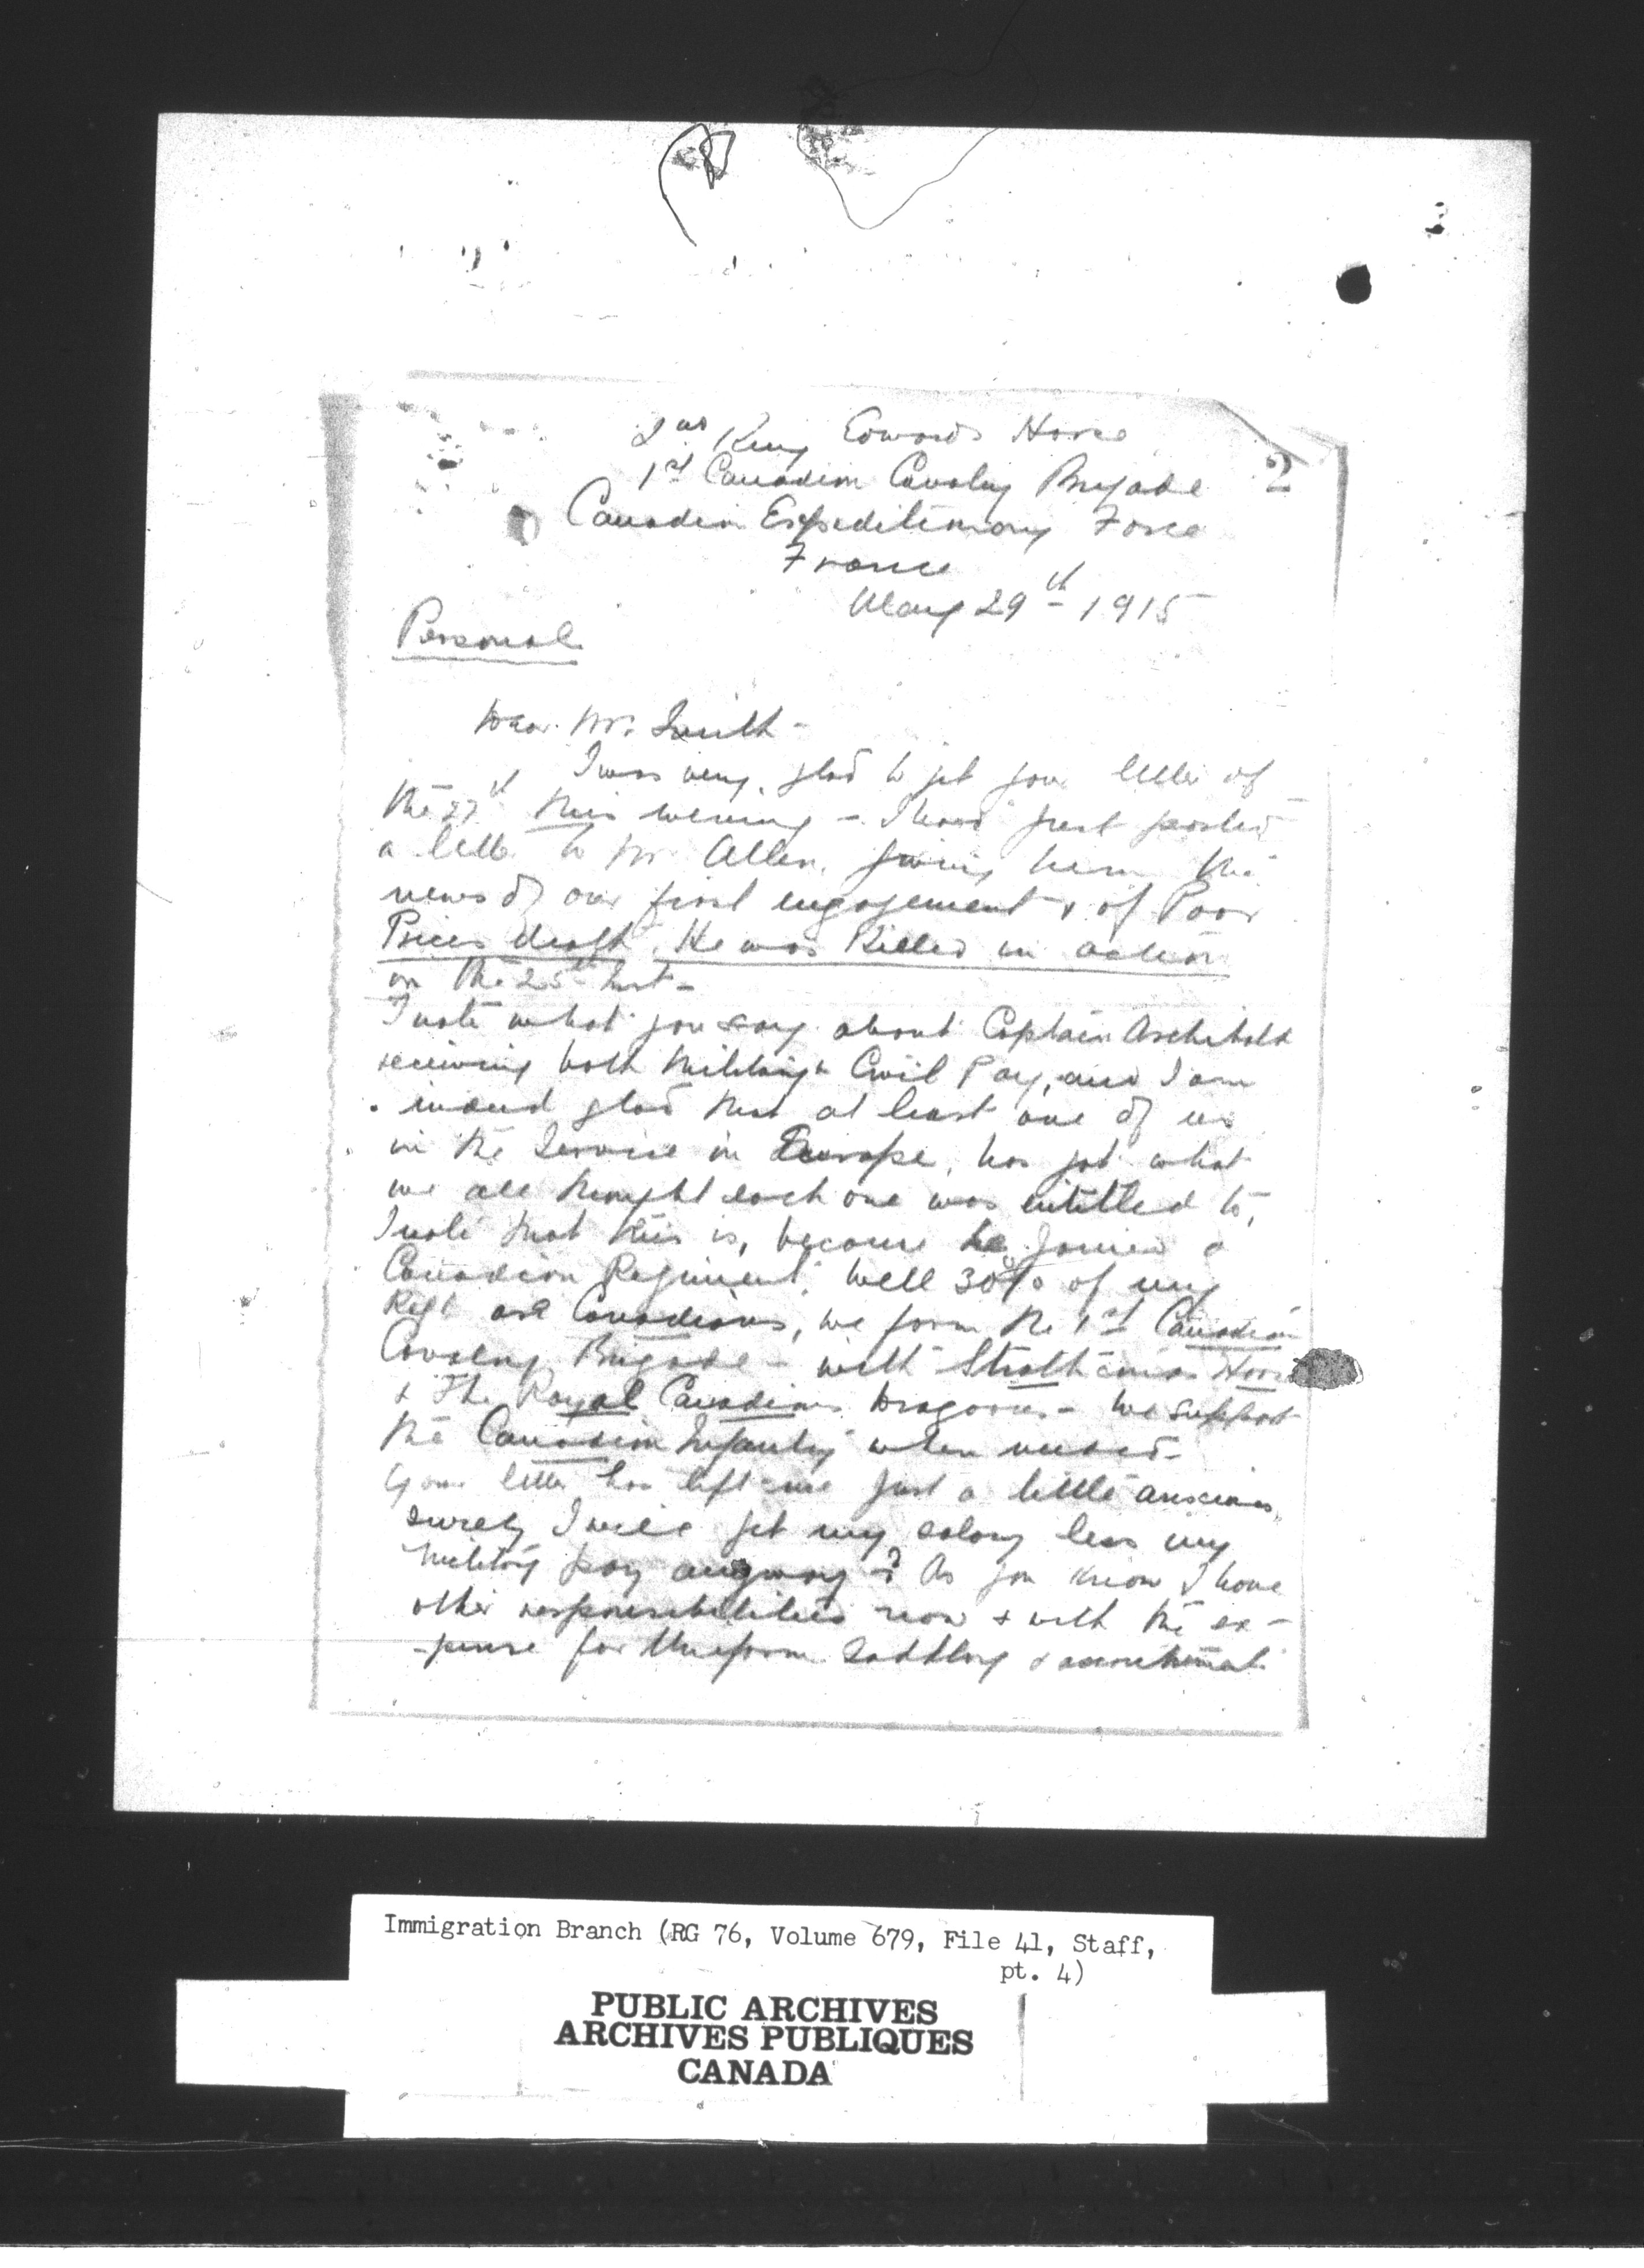 3
2nd King Edwards Horse
1st Canadian Cavalry Brigade 2
Canadian Expeditionary Force
France
May 29th 1915
Personal
Dear Mr. Smith -
I was very glad to get your letter of
the 27th this evening - I had just posted
a letter to Mr Allen, giving him the
news of our first engagement & of Poor
Prices death. He was killed in action
on the 25th Inst -
I note what you say about Captain Archibald
receiving both Military & Civil Pay, and I am
indeed glad that at least one of us
in the Service in Europe, has got what
we all thought each one was entitled to,
I note that this is, because he joined a
Canadian Regiment. Well 30% of my
Regt are Canadians, we form the 1st Canadian
Cavalry Brigade - with Strathconas Horse
& The Royal Canadian Dragoons - We support
the Canadian Infantry when needed -
Your letter has left me just a little anxious,
surely I will get my salary less my
Military pay anyway -? As you know I have
other responsibilities now & with the ex-
-pense for Uniform Saddlery &
Immigration Branch (RG 76, Volume 679, File 41, Staff,
pt. 4)
PUBLIC ARCHIVES
ARCHIVES PUBLIQUES
CANADA